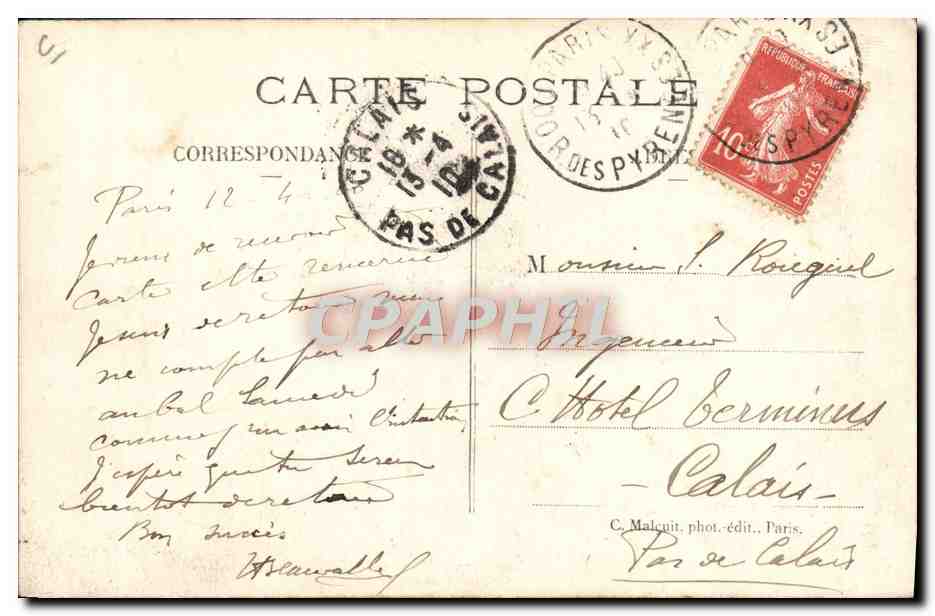 CARTE POSTALE
CORRESPONDANCE
Paris 12-4
Je viens de recevoir
carte elle
Je suis de retour mais
ne compte pas aller
au bal Samedi
comme j'en avais l'intention,
J'espère que tu seras
bientôt de retour
Bon succès
CALAIS CALAIS
18 *
13 -4
10
PAS DE CALAIS
PARIS XX
13
10
R. DES PYRENEES
PARIS XX
R. DES PYRENEES
REPUBLIQUE FRANÇAISE
10
POSTES
Monsieur S.
Ingénieur
C Hotel Terminus
- Calais -
Pas de Calais
C. Malcuit, phot.-édit., Paris.
CPAPHIL